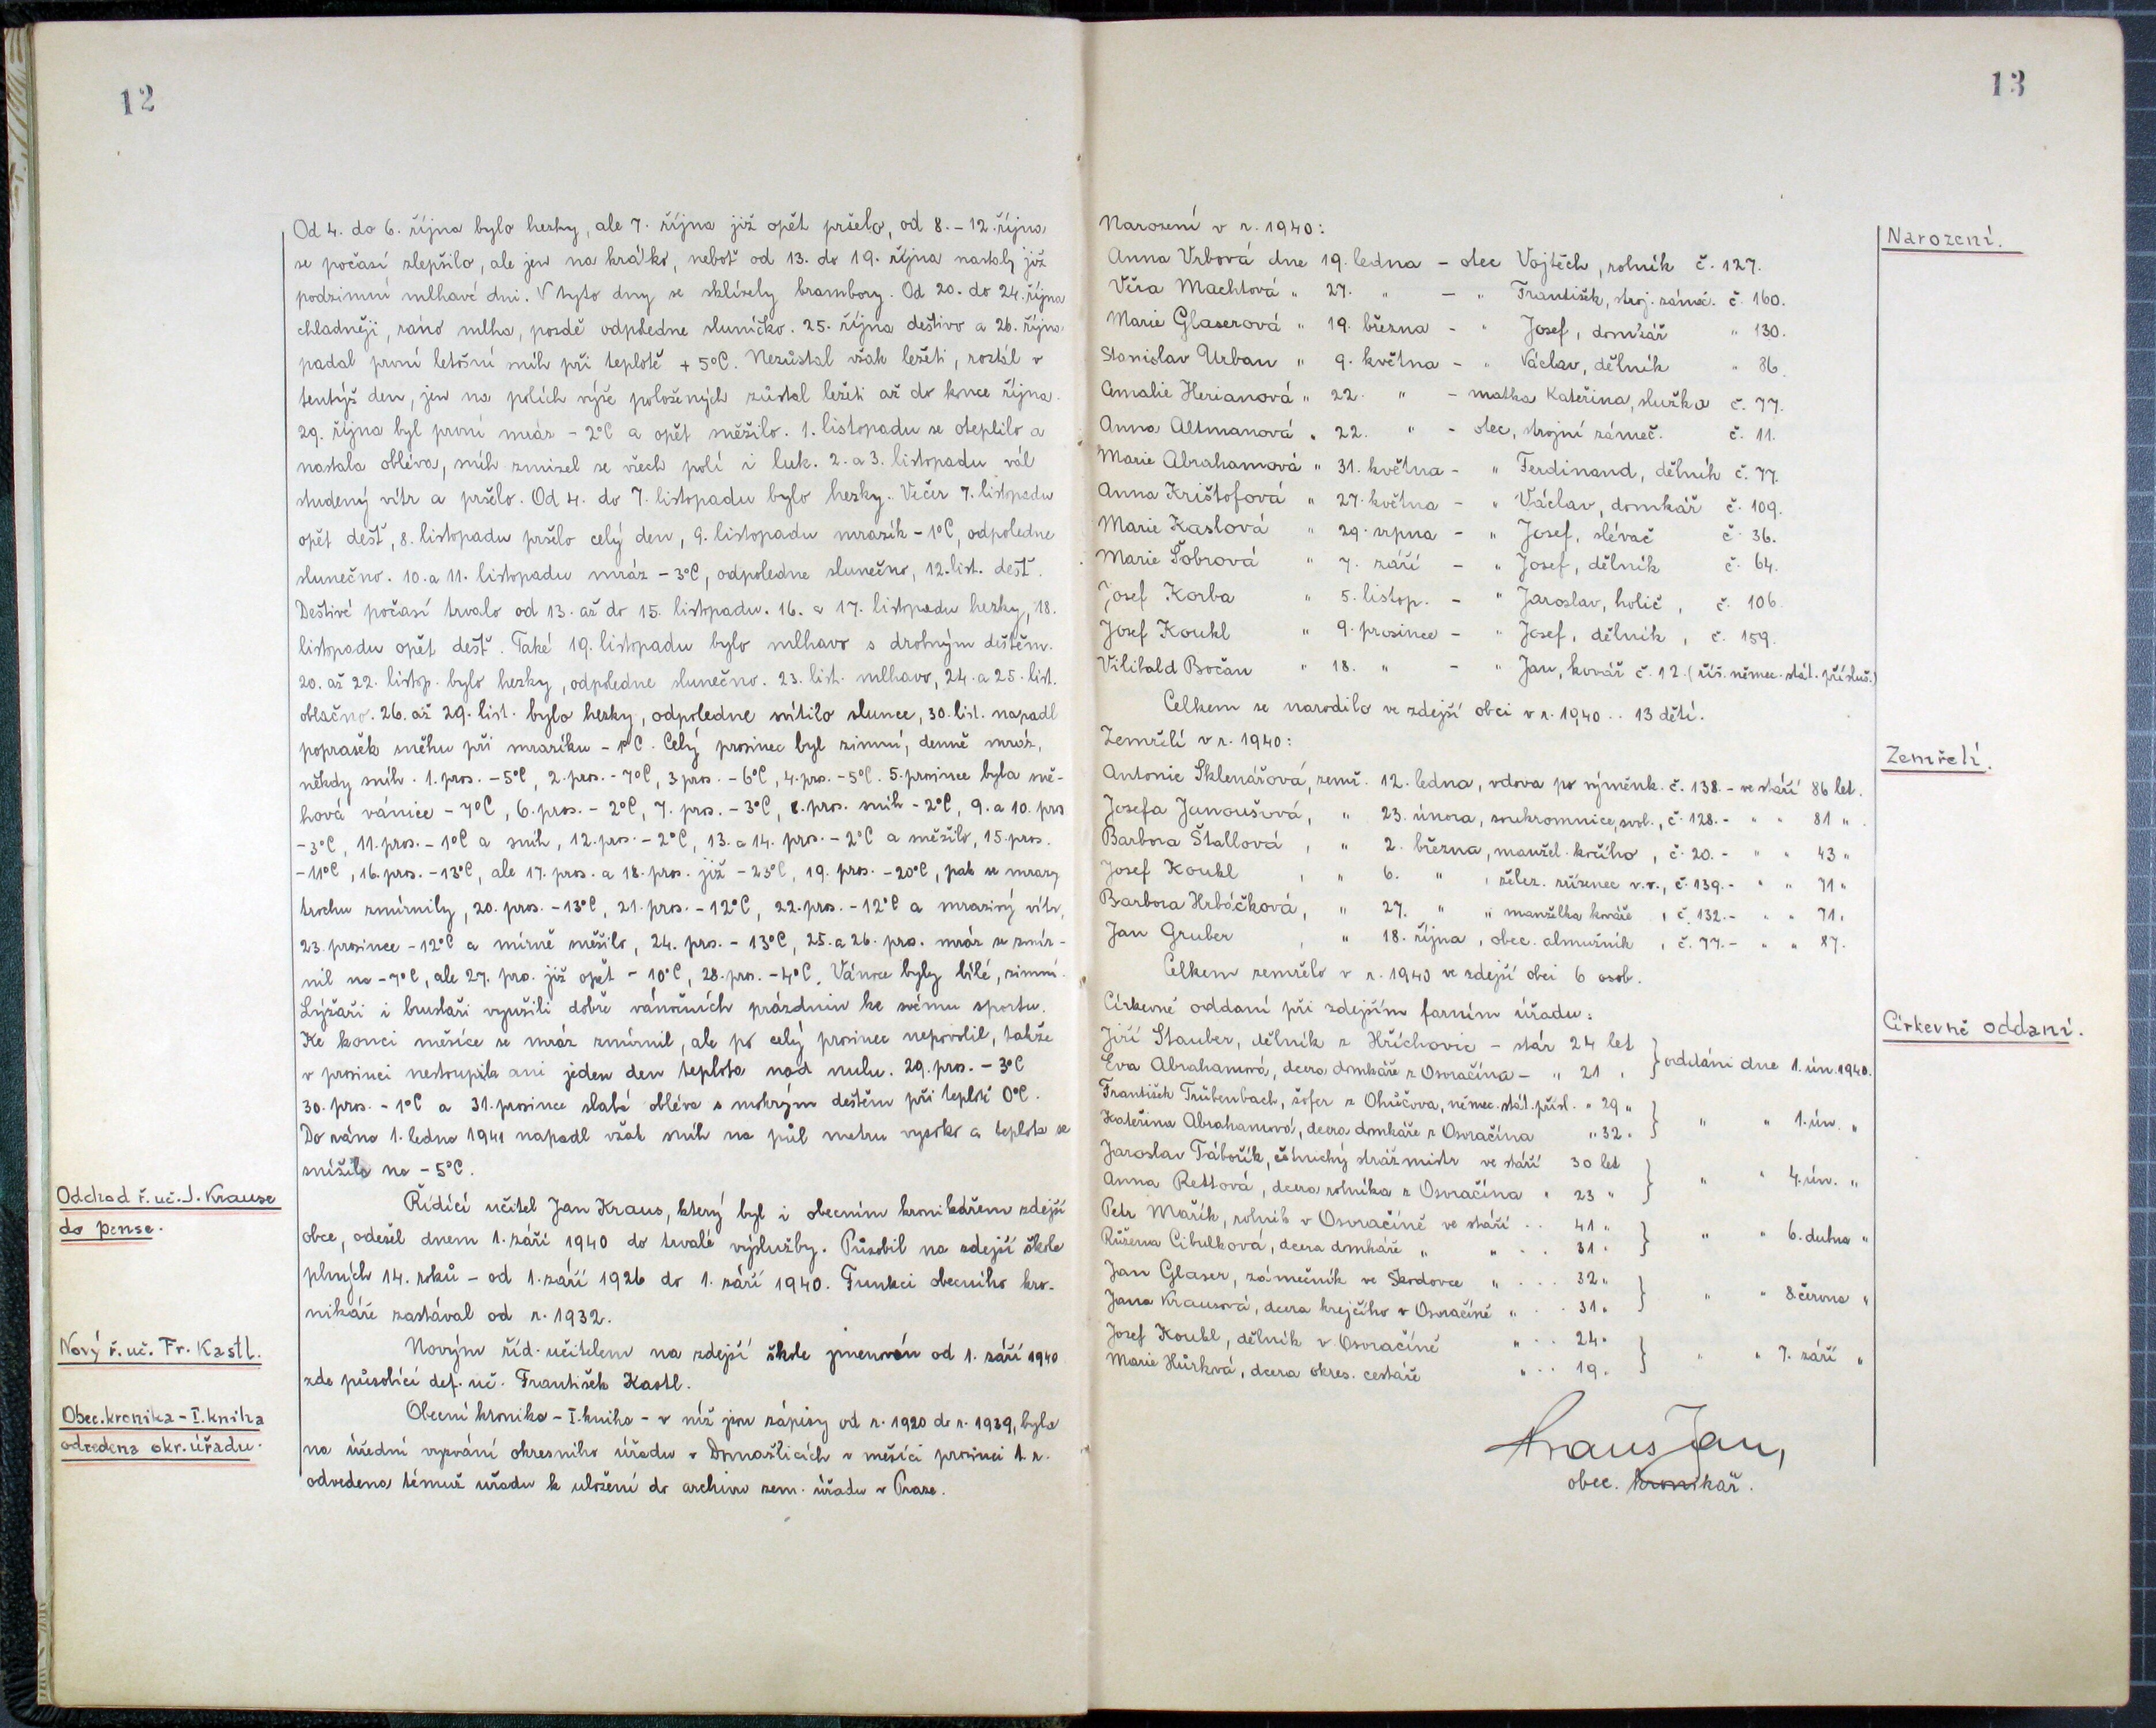 12
Od 4. do 6. října bylo hezky, ale 7. října již opět pršelo, od 8. – 12. října
se počasí zlepšilo, ale jen na krátko, neboť od 13. do 19. října nastaly již
podzimní mlhavé dni. V tyto dny se sklízely brambory. Od 20. do 24. října
chladněji, ráno mlha, pozdě odpoledne sluníčko. 25. října deštivo a 26. října
padal první letošní sníh při teplotě + 5°C. Nezůstal však ležeti, roztál v
tentýž den, jen na polích výše položených zůstal ležeti až do konce října.
29. října byl první mráz – 2°C a opět sněžilo. 1. listopadu se oteplilo a
nastala obléva, sníh zmizel se všech polí i luk. 2. a 3. listopadu vál
studený vítr a pršelo. Od 4. do 7. listopadu bylo hezky. Večer 7. listopadu
opět déšť, 8. listopadu pršelo celý den, 9. listopadu mrazík – 1°C, odpoledne
slunečno. 10. a 11. listopadu mráz – 3°C, odpoledne slunečno, 12. list. déšť.
Deštivé počasí trvalo od 13. až do 15. listopadu. 16. a 17. listopadu hezky, 18.
listopadu opět déšť. Také 19. listopadu bylo mlhavo s drobným deštěm.
20. až 22. listop. bylo hezky, odpoledne slunečno. 23. list. mlhavo, 24. a 25. list.
oblačno. 26. až 29. list. bylo hezky, odpoledne svítilo slunce, 30. list. napadl
poprašek sněhu při mrazíku – 1°C. Celý prosinec byl zimní, denně mráz,
někdy sníh. 1. pros. – 5°C, 2. pros. – 7°C, 3 pros. – 6°C, 4. pros. – 5°C. 5. prosince byla sně-
hová vánice – 7°C, 6. pros. – 2°C, 7. pros. – 3°C, 8. pros. sníh – 2°C, 9. a 10. pros
– 3°C, 11. pros. – 1°C a sníh, 12. pros. – 2°C, 13. a 14. pros. – 2°C a sněžilo, 15. pros.
– 11°C, 16. pros. – 13°C, ale 17. pros. a 18. pros. již – 23°C, 19. pros. – 20°C, pak se mrazy
trochu zmírnily, 20. pros. – 13°C, 21. pros. – 12°C, 22. pros. – 12°C a mrazivý vítr,
23. prosince – 12°C a mírně sněžilo, 24. pros. – 13°C, 25. a 26. pros. mráz se zmír-
nil na – 7°C, ale 27. pros. již opět – 10°C, 28. pros. – 4°C. Vánoce byly bílé, zimní.
Lyžaři i bruslaři využili dobře vánočních prázdnin ke svému sportu.
Ke konci měsíce se mráz zmírnil, ale po celý prosinec nepovolil, takže
v prosinci nestoupila ani jeden den teplota nad nulu. 29. pros. – 3°C
30. pros. – 1°C a 31. prosince slabá obléva s mokrým deštěm při teplotě 0°C.
Do rána 1. ledna 1941 napadl však sníh na půl metru vysoko a teplota se
snížila na – 5°C.
Odchod ř. uč. J. Krause
do pense.
Řídící učitel Jan Kraus, který byl i obecním kronikářem zdejší
obce, odešel dnem 1. září 1940 do trvalé výslužby. Působil na zdejší škole
plných 14. roků – od 1. září 1926 do 1. září 1940. Funkci obecního kro-
nikáře zastával od r. 1932.
Nový ř. uč. Fr. Kastl.
Novým říd. učitelem na zdejší škole jmenován od 1. září 1940
zde působící def. uč. František Kastl.
Obec. kronika – I. kniha
odvedena okr. úřadu.
Obecní kronika – I. kniha – v níž jsou zápisy od r. 1920 do r. 1939, byla
na úřední vyzvání okresního úřadu v Domažlicích v měsíci prosinci t. r.
odvedena témuž úřadu k uložení do archivu zem. úřadu v Praze.
13
Narození.
Narození v r. 1940:
Anna Vrbová dne 19. ledna – otec Vojtěch, rolník č. 127.
Věra Machtová " 27. " – " František, stroj. zámeč. č. 160.
Marie Glaserová " 19. března – " Josef, domkář " 130.
Stanislav Urban " 9. května – " Václav, dělník " 86.
Amalie Herianová " 22. " – matka Kateřina, služka č. 77.
Anna Altmanová " 22. " – otec, strojní zámeč. č. 11.
Marie Abrahamová " 31. května – " Ferdinand, dělník č. 77.
Anna Krištofová " 27. května – " Václav, domkář č. 109.
Marie Kaslová " 29. srpna – " Josef, slévač č. 36.
Marie Šobrová " 7. září – " Josef, dělník č. 64.
Josef Korba " 5. listop. – " Jaroslav, holič, č. 106.
Josef Koukl " 9. prosince – " Josef, dělník, č. 159.
Vilibald Bočan " 18. " – " Jan, kovář č. 12. (říš. němec. stát. přísluš.)
Celkem se narodilo ve zdejší obci v r. 1940 .. 13 dětí.
Zemřelí.
Zemřelí v r. 1940:
Antonie Sklenářová, zemř. 12. ledna, vdova po výměnk. č. 138. – ve stáří 86 let.
Josefa Janoušová, " 23. února, soukromnice, svob., č. 128. – " " 81 ".
Barbora Štallová, " 2. března, manžel. kočího, č. 20. – " " 43 "
Josef Koukl, " 6. ", želez. zřízenec v.v., č. 139. – " " 71 "
Barbora Hrbáčková, " 27. " " manželka kováře, č. 132. – " " 71.
Jan Gruber, " 18. října, obec. almužník, č. 77. – " " 87.
Celkem zemřelo v r. 1940 ve zdejší obci 6 osob.
Církevně oddaní.
Církevně oddaní při zdejším farním úřadu:
Jiří Stauber, dělník z Hříchovic – stár 24 let
Eva Abrahamová, dcera domkáře z Osvračína – " 21 " } oddáni dne 1. ún. 1940.
František Trübenbach, šofer z Ohučova, němec. stát. přísl. " 29 "
Kateřina Abrahamová, dcera domkáře z Osvračína " 32 " } " " 1. ún. "
Jaroslav Tábořík, četnický strážmistr ve stáří 30 let
Anna Rettová, dcera rolníka z Osvračína " 23 " } " " 4. ún. "
Petr Mařík, rolník v Osvračíně ve stáří .. 41 "
Růžena Cibulková, dcera domkáře " " .. 31 " } " " 6. dubna "
Jan Glaser, zámečník ve Škodovce " ... 32 "
Jana Krausová, dcera krejčího v Osvračíně " .. 31 " } " " 8. června "
Josef Koukl, dělník v Osvračíně " .. 24 "
Marie Hůrková, dcera okres. cestáře " .. 19. } " " 7. září "
Kraus Jan,
obec. kronikář.